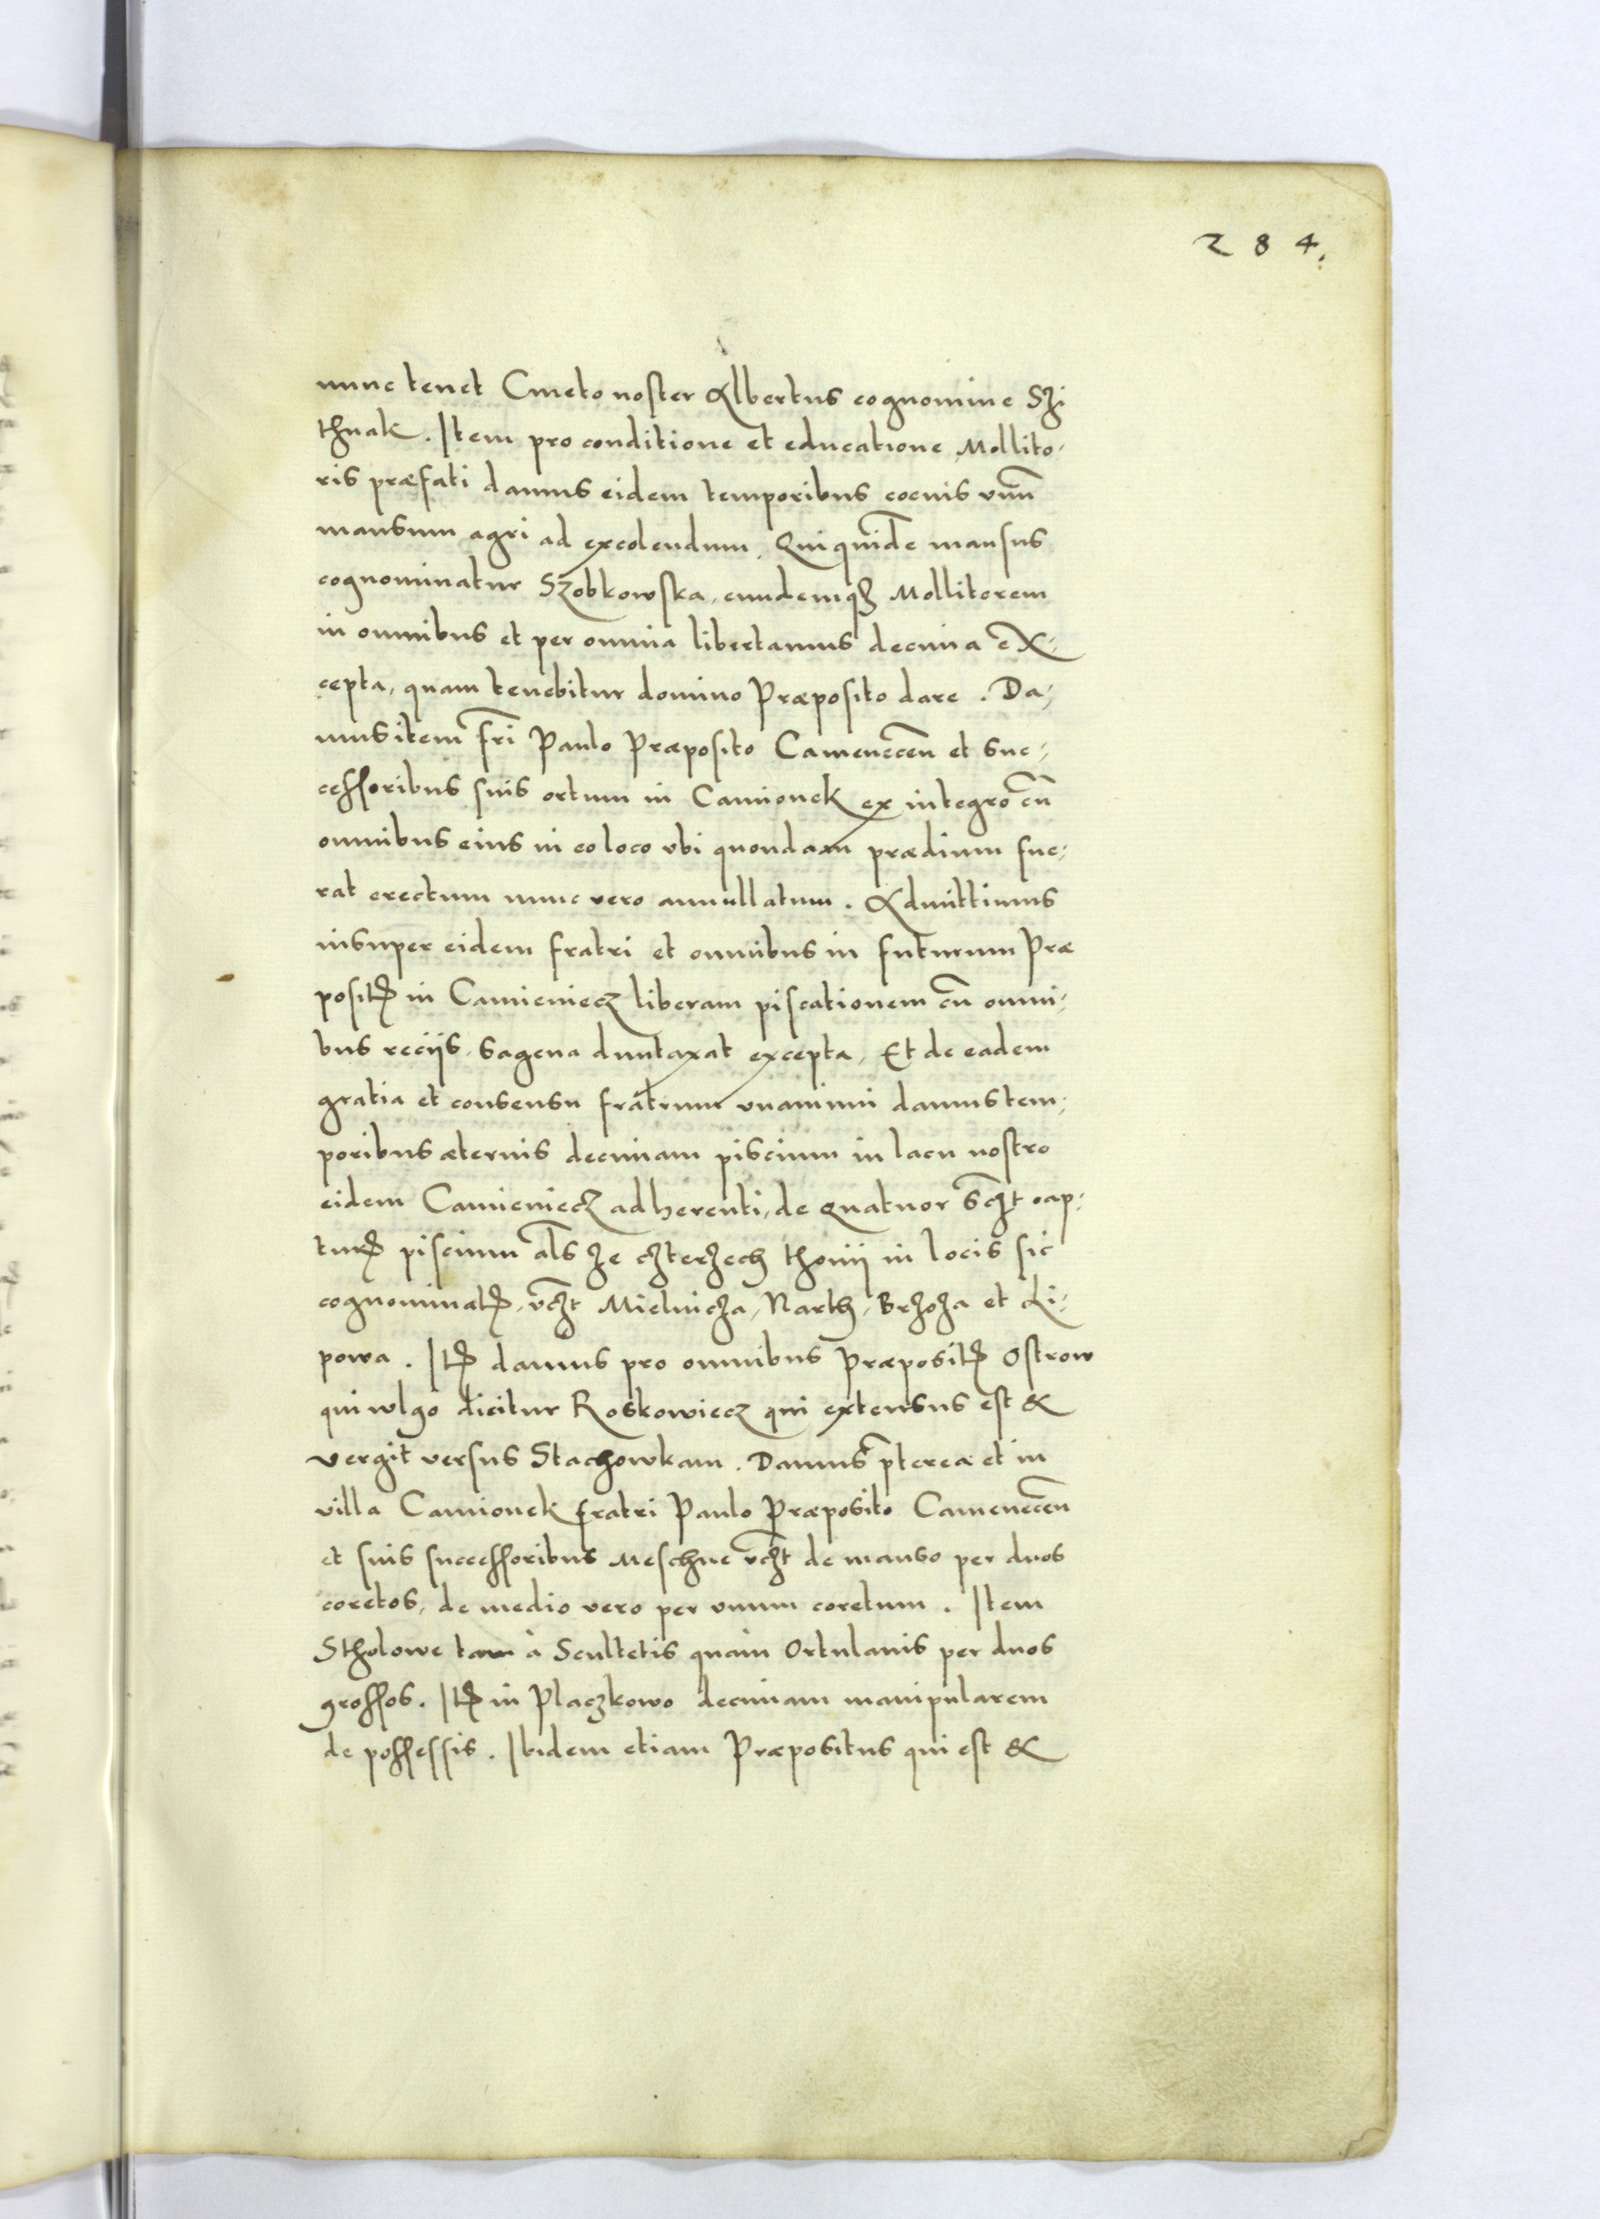 284.
nunc tenet Cmeto noster Albertus cognomine Szi
thnak. Item pro conditione et educatione Mollito-
ris præfati damus eidem temporibus coevis vnū
mansum agri ad excolendum. Qui quidē mansus
cognominatur Szobkowska, eundemqȝ Mollitorem
in omnibus et per omnia libertamus decima ex-
cepta, quam tenebitur domino Præposito dare. Da-
mus item fri Paulo Præposito Camenecen̄ et suc-
cessoribus suis ortum in Camionek ex integro cū
omnibus eius in eo loco vbi quondam prædium fue-
rat erectum nunc vero annullatum. Admittimus
insuper eidem fratri et omnibus in futurum Præ
positꝭ in Camieniecz liberam piscationem cū omni-
bus reciis, sagena duntaxat excepta, Et de eadem
gratia et consensu fratrum vnanimi damus tem-
poribus æternis decimam piscium in lacu nostro
eidem Camieniecz adherenti, de quatuor sczt cap-
turꝭ piscium als ze czterzech thonij in locis sic
cognominatꝭ, vczt Mielnicza, Narth, Brzoza et Li-
powa. Itꝭ damus pro omnibus Præpositꝭ Ostrow
qui wlgo dicitur Roskowiecz qui extensus est &
vergit versus Stachowkam. Damus p̄terea et in
villa Camionek fratri Paulo Præposito Camenecen̄
et suis successoribus Meschne vczt de manso per duos
coretos, de medio vero per vnum coretum. Item
Stholowe tam à Scultetis quàm Ortulanis per duos
grossos. Itꝭ in Placzkowo decimam manipularem
de possessis. Ibidem etiam Præpositus qui est &